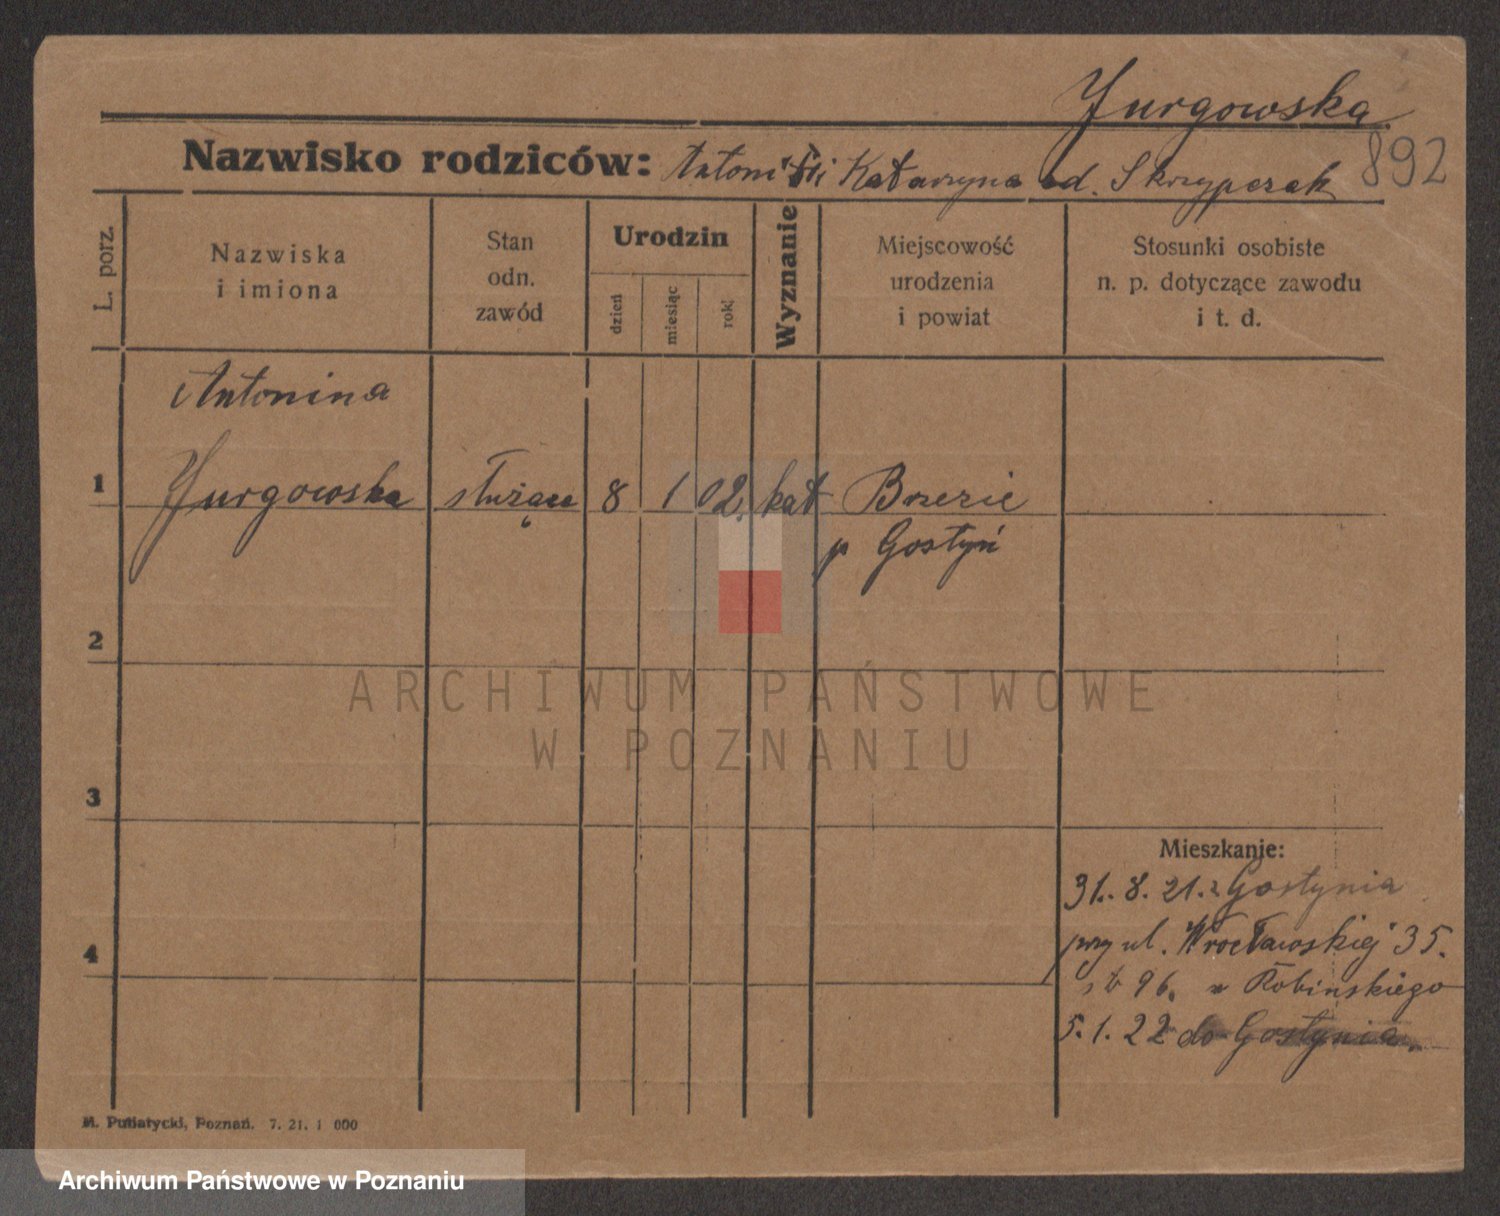 Jurgowska
892
Nazwisko rodziców: Antoni i Katarzyna od. Skrzypczak
L. porz.
Nazwiska
i imiona
Stan
odn.
zawód
Urodzin
dzień
miesiąc
rok
Wyznanie
Miejscowość
urodzenia
i powiat
Stosunki osobiste
n. p. dotyczące zawodu
i t. d.
Antonina
1 Jurgowska służąca 8 1 02. kat Brzezie
p Gostyń
2
ARCHIWUM PAŃSTWOWE
W POZNANIU
3
Mieszkanie:
31. 8. 21. z Gostynia
przy ul. Wrocławskiej 35.
4
96. u Robinskiego
5. 1. 22 do Gostynia.
M. Putiatycki, Poznań. 7. 21. 1 000
Archiwum Państwowe w Poznaniu